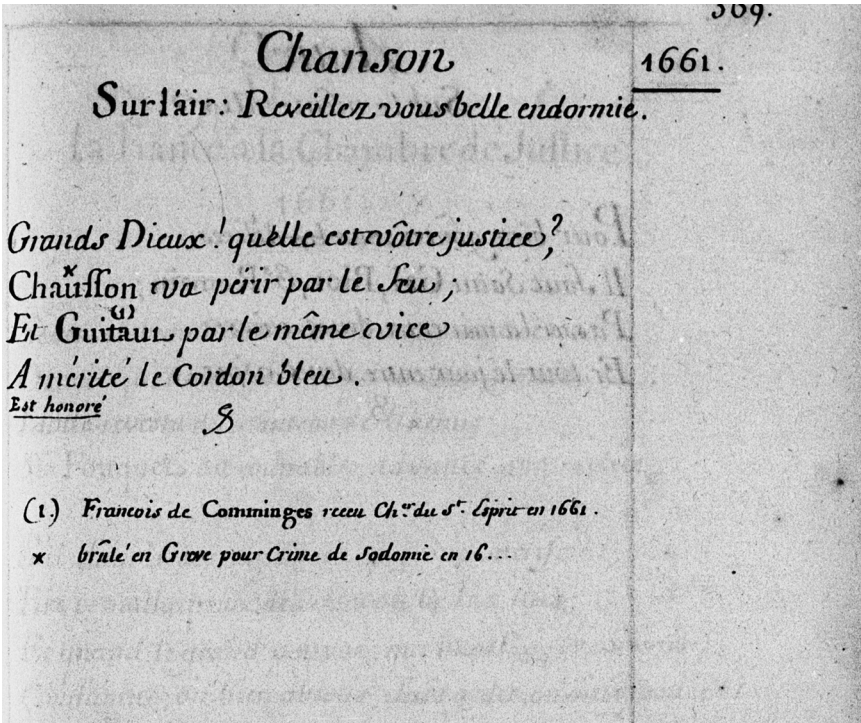 369.
Chanson
1661.
Sur l'air: Reveillez vous belle endormie.
Grands Dieux! quelle est vôtre justice?
Chausson * va périr par le feu;
Et Guitaut (1) par le même vice
A mérité le Cordon bleu.
Est honoré
(1.) Francois de Comminges receu Ch.er du St. Esprit en 1661.
* brûlé en Greve pour Crime de Sodomie en 16...